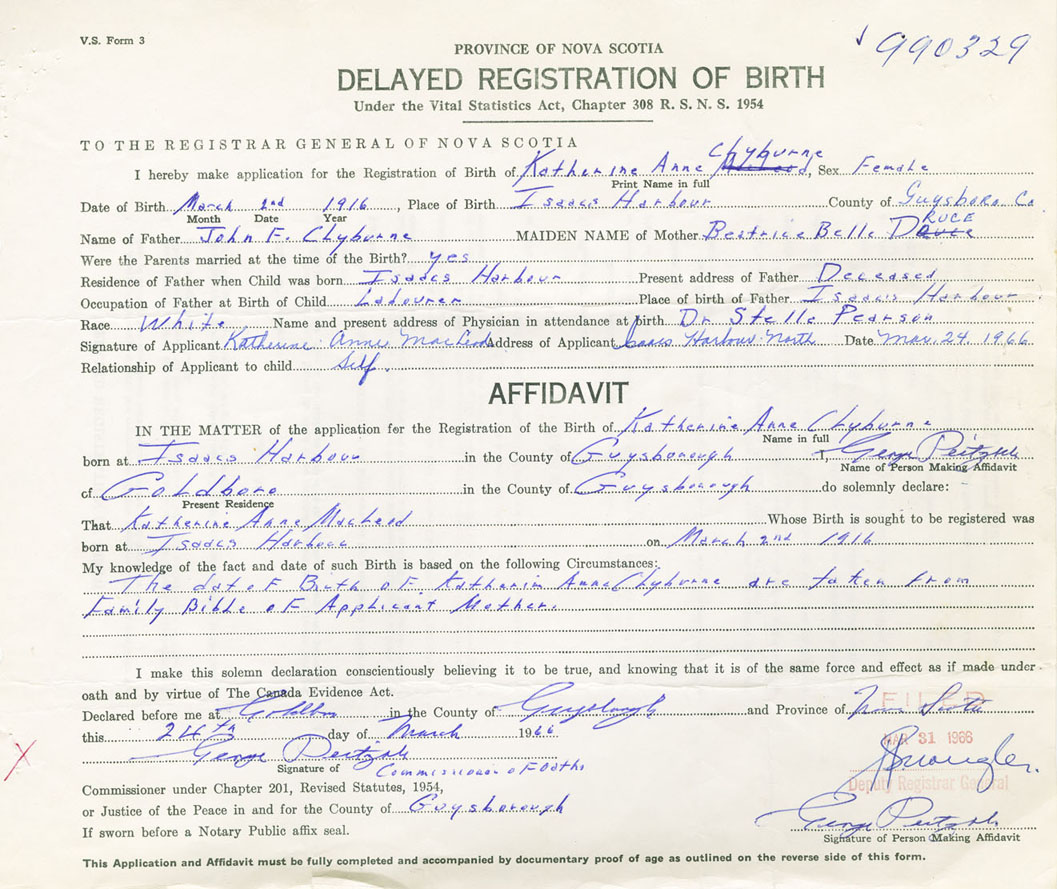 V.S. Form 3
990329
PROVINCE OF NOVA SCOTIA
DELAYED REGISTRATION OF BIRTH
Under the Vital Statistics Act, Chapter 308 R. S. N. S. 1954
TO THE REGISTRAR GENERAL OF NOVA SCOTIA
I hereby make application for the Registration of Birth of Katherine Anne Clyburne, Sex Female
Print Name in full
Date of Birth March 2nd 1916, Place of Birth Isaacs Harbour County of Guysboro Co
Month Date Year
Name of Father John F. Clyburne MAIDEN NAME of Mother Beatrice Belle DRUCE
Were the Parents married at the time of the Birth? yes
Residence of Father when Child was born Isaacs Harbour Present address of Father Deceased
Occupation of Father at Birth of Child Labourer Place of birth of Father Isaacs Harbour
Race White Name and present address of Physician in attendance at birth Dr Stella Pearson
Signature of Applicant Katherine Anne MacLeod Address of Applicant Isaacs Harbour North Date Mar. 24 1966
Relationship of Applicant to child Self.
AFFIDAVIT
IN THE MATTER of the application for the Registration of the Birth of Katherine Anne Clyburne
Name in full
born at Isaacs Harbour in the County of Guysborough I, George
Name of Person Making Affidavit
of Goldboro in the County of Guysborough do solemnly declare:
Present Residence
That Katherine Anne MacLeod Whose Birth is sought to be registered was
born at Isaacs Harbour on March 2nd 1916
My knowledge of the fact and date of such Birth is based on the following Circumstances:
The date of Birth of Katherin Anne Clyburne are taken from
Family Bible of Applicant Mother.
I make this solemn declaration conscientiously believing it to be true, and knowing that it is of the same force and effect as if made under
oath and by virtue of The Canada Evidence Act.
Declared before me at Goldboro in the County of Guysborough and Province of Nova Scotia
FILED
this 24th day of March 1966
MAR 31 1966
George
Signature of Commissioner of Oaths
Deputy Registrar General
Commissioner under Chapter 201, Revised Statutes, 1954,
or Justice of the Peace in and for the County of Guysborough
George
If sworn before a Notary Public affix seal.
Signature of Person Making Affidavit
This Application and Affidavit must be fully completed and accompanied by documentary proof of age as outlined on the reverse side of this form.